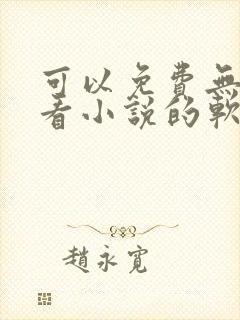 可以免費無
看小說的軟
趙永寬